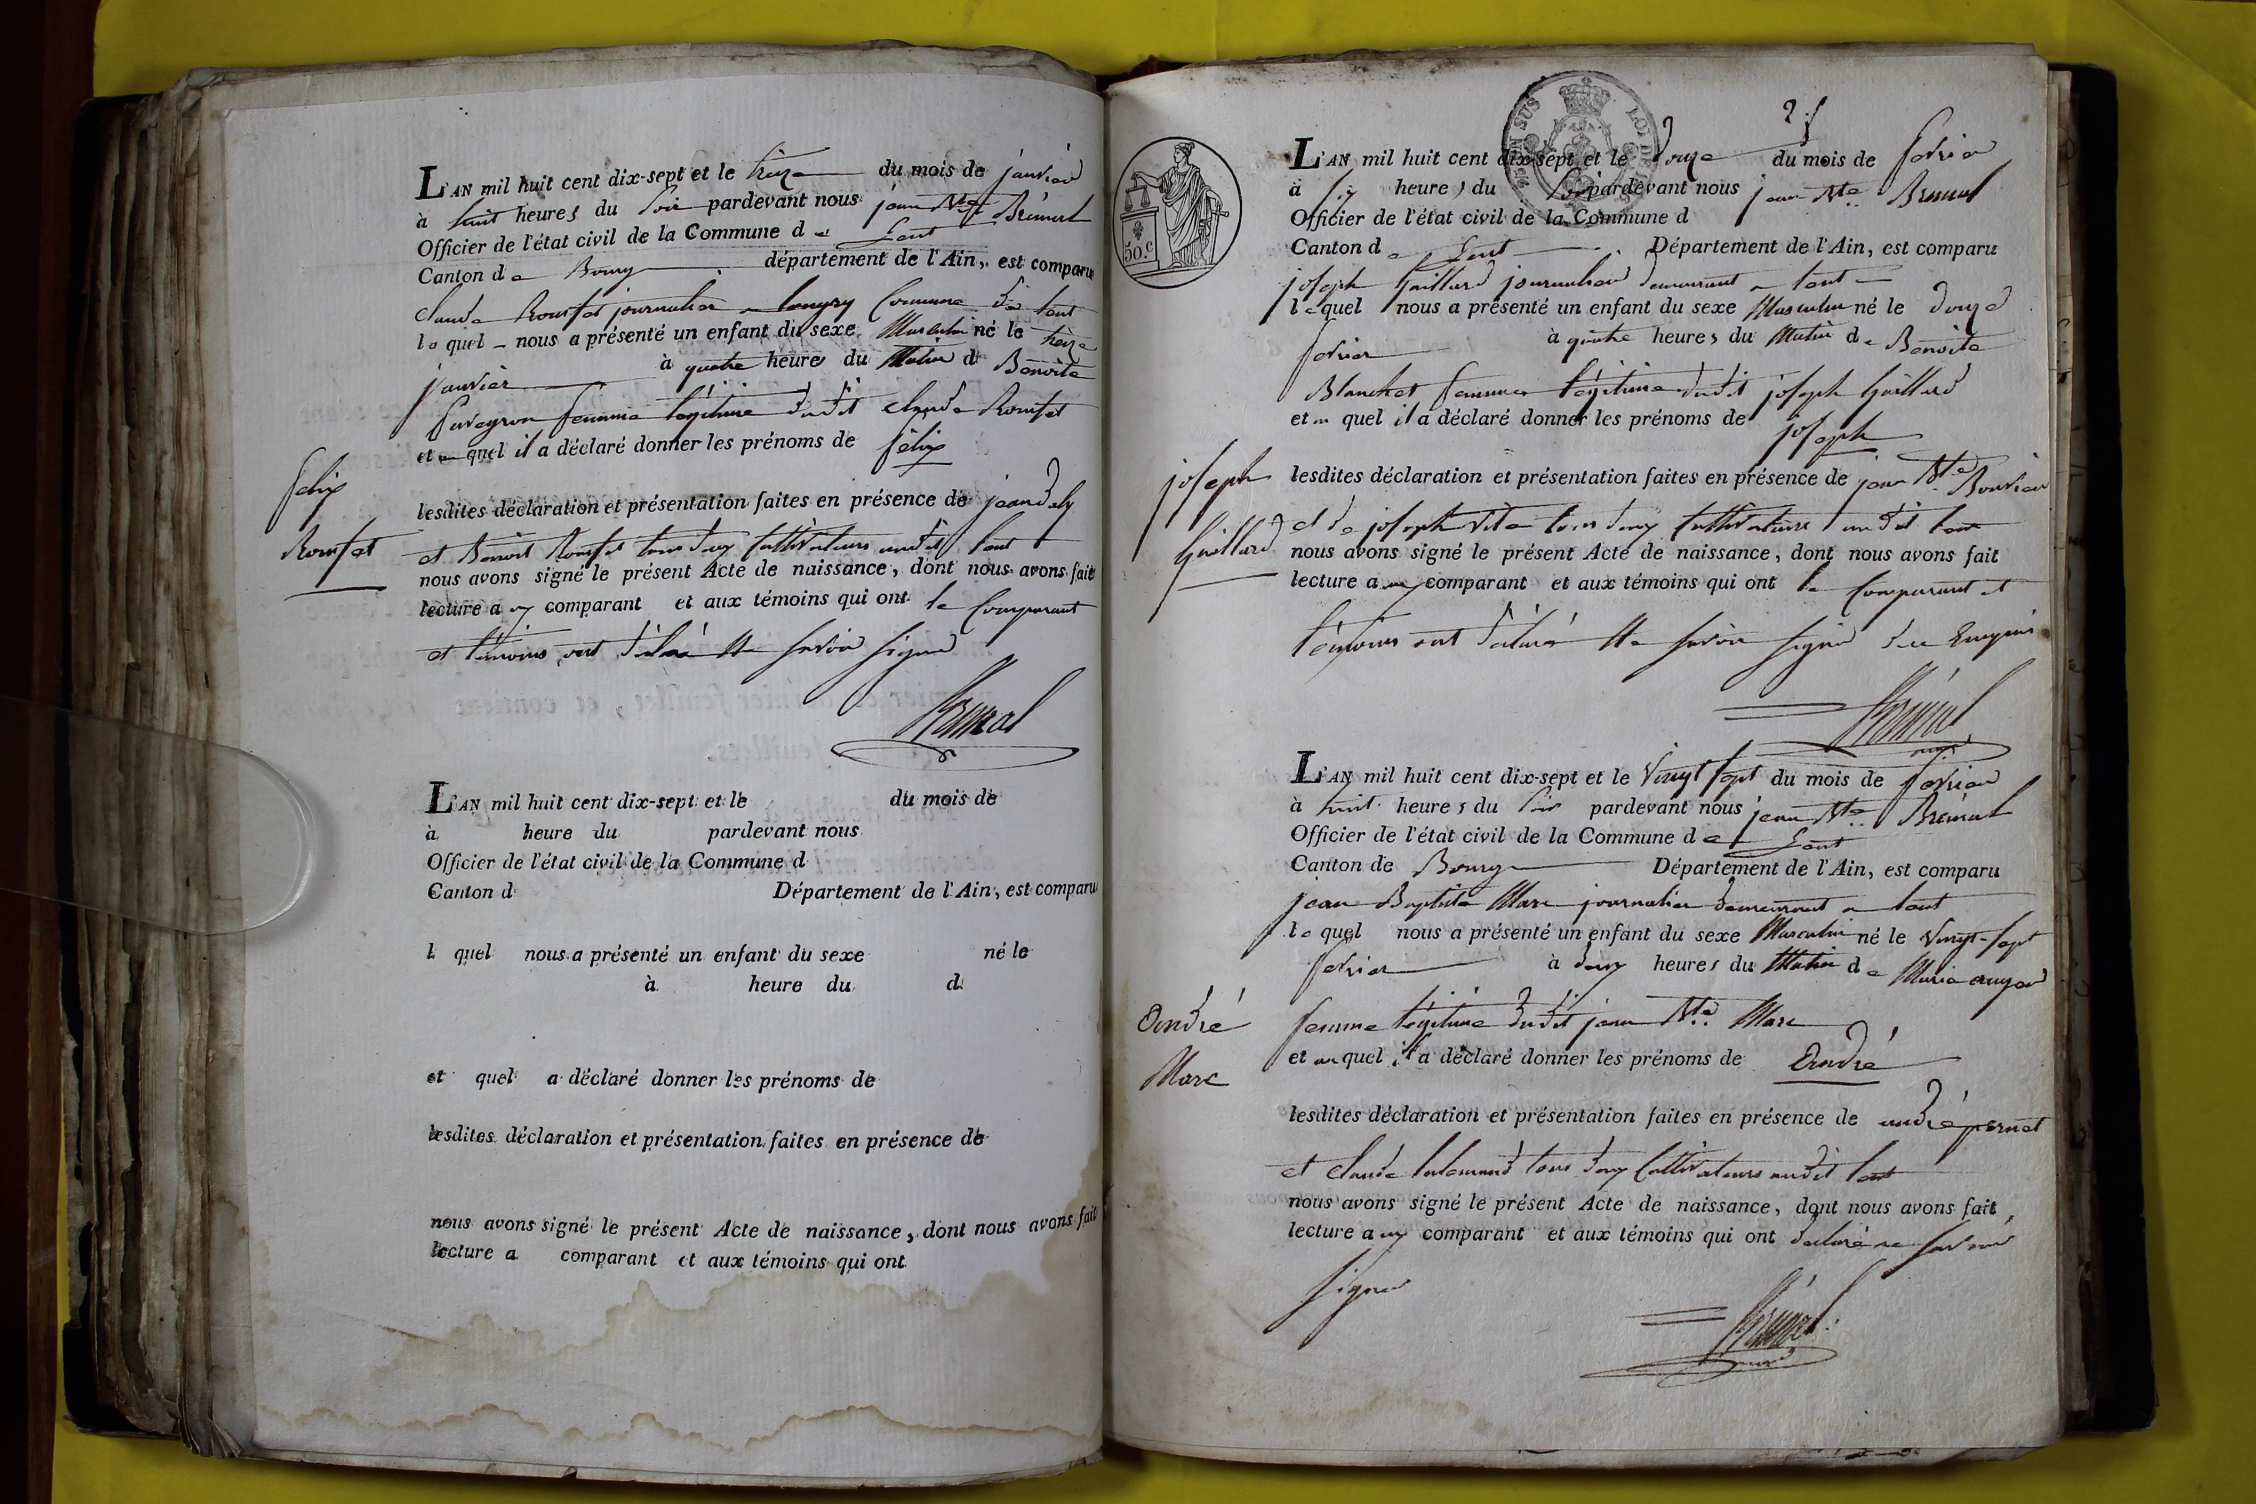 L'AN mil huit cent dix-sept et le treize du mois de janvier
à huit heures du soir pardevant nous jean Bte Brémal
Officier de l'état civil de la Commune de Lent
Canton de Bourg département de l'Ain, est comparu
claude Rousset journalier a longry Commune de lent
le quel nous a présenté un enfant du sexe Masculin né le treize
janvier à quatre heures du Matin de Benoite
femme légitime dudit claude Rousset
et au quel il a déclaré donner les prénoms de félix
felix
Rousset
lesdites déclaration et présentation faites en présence de jean
et Benoit Rousset tous deux Cultivateurs audit lent
nous avons signé le présent Acte de naissance, dont nous avons fait
lecture aux comparant et aux témoins qui ont le Comparant
et témoins ont déclaré ne savoir signer
Brémal
L'AN mil huit cent dix-sept et le du mois de
à heure du pardevant nous
Officier de l'état civil de la Commune d
Canton d Département de l'Ain, est comparu
l quel nous a présenté un enfant du sexe né le
à heure du d
et quel a déclaré donner les prénoms de
lesdites déclaration et présentation faites en présence de
nous avons signé le présent Acte de naissance, dont nous avons fait
lecture a comparant et aux témoins qui ont
50.c
LOI DE
SUS
L'AN mil huit cent dix-sept et le douze du mois de fevrier
à six heures du soir pardevant nous jean Bte Brémal
Officier de l'état civil de la Commune d
Canton de Lent Département de l'Ain, est comparu
joseph Guillard journalier demeurant a lent
lequel nous a présenté un enfant du sexe Masculin né le douze
fevrier à quatre heures du Matin de Benoite
Blanchet femme légitime dudit joseph Guillard
et au quel il a déclaré donner les prénoms de joseph
joseph
Guillard
lesdites déclaration et présentation faites en présence de jean Bte Bouvier
et de joseph tous deux Cultivateurs audit lent
nous avons signé le présent Acte de naissance, dont nous avons fait
lecture aux comparant et aux témoins qui ont le Comparant et
témoins ont déclaré ne savoir signer de ce Enquis
Brémal
L'AN mil huit cent dix-sept et le Vingt sept du mois de fevrier
à huit heures du soir pardevant nous jean Bte Brémal
Officier de l'état civil de la Commune de Lent
Canton de Bourg Département de l'Ain, est comparu
jean Baptiste Marc journalier demeurant a lent
le quel nous a présenté un enfant du sexe Masculin né le Vingt-sept
fevrier à deux heures du Matin de Marie
femme légitime dudit jean Bte Marc
et au quel il a déclaré donner les prénoms de André
André
Marc
lesdites déclaration et présentation faites en présence de andré pernet
et claude lalemand tous deux Cultivateurs audit lent
nous avons signé le présent Acte de naissance, dont nous avons fait
lecture aux comparant et aux témoins qui ont déclaré ne savoir
signer
Brémal